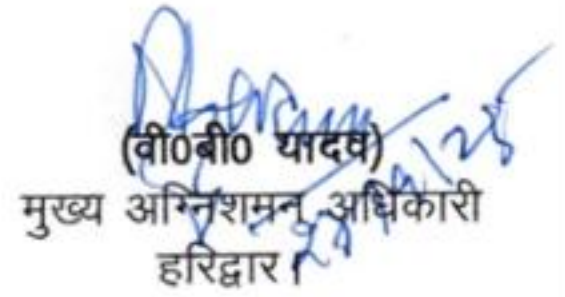 (वी0बी0 यादव)
मुख्य अग्निशमन अधिकारी
हरिद्वार।